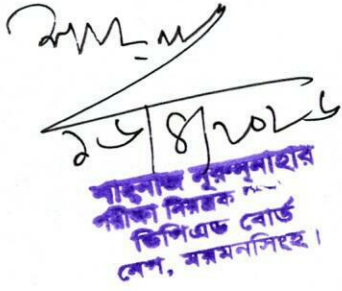 ১৬/৪/২০২৬
শাহনাজ নূরুন্নাহার
পরীক্ষা নিয়ন্ত্রক
ডিপিএড বোর্ড
নেপ, ময়মনসিংহ।